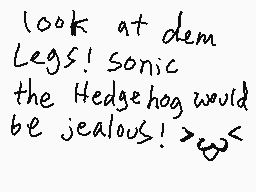 look at dem
Legs! sonic
the Hedgehog would
be jealous! >ω<